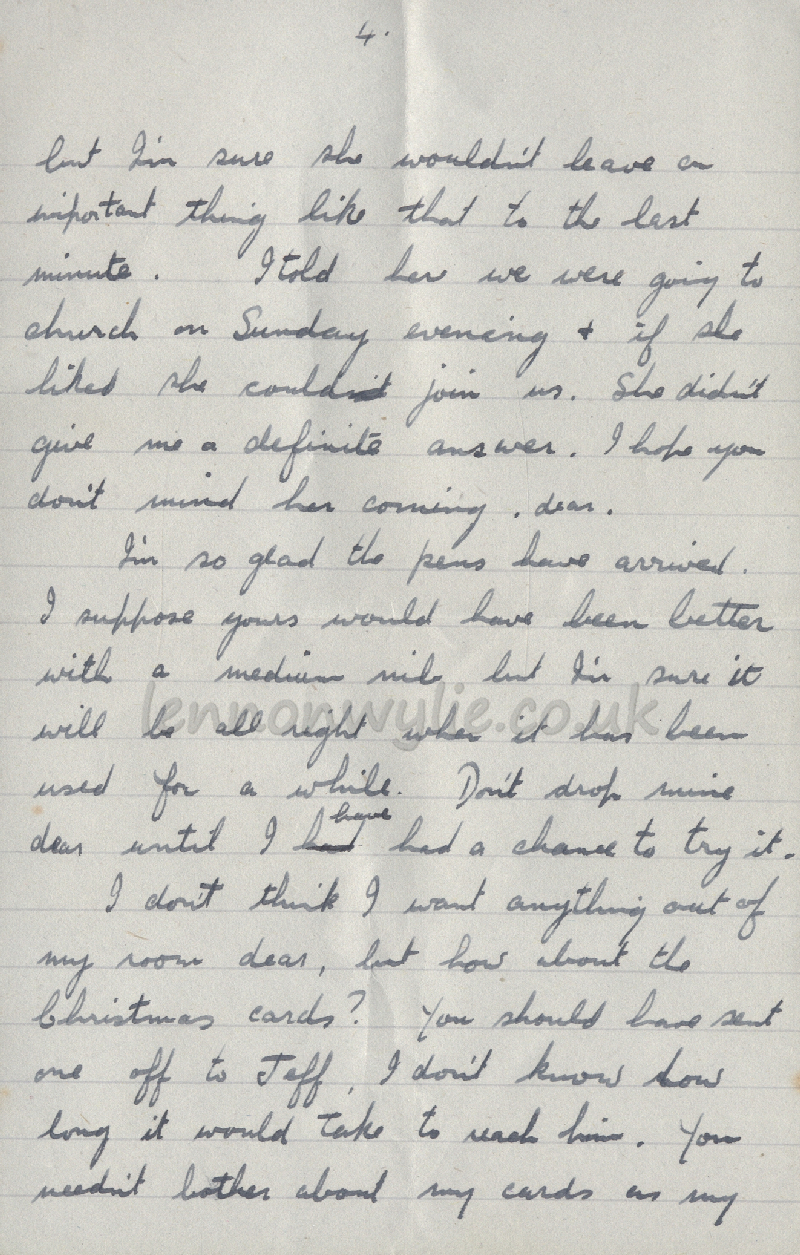 4.
but I'm sure she wouldn't leave an
important thing like that to the last
minute. I told her we were going to
church on Sunday evening + if she
liked she couldn't join us. She didn't
give me a definite answer. I hope you
don't mind her coming, dear.
I'm so glad the pens have arrived.
I suppose yours would have been better
with a medium nib but I'm sure it
lennonwylie.co.uk
will be all right when it has been
used for a while. Don't drop mine
have
dear until I had had a chance to try it.
I don't think I want anything out of
my room dear, but how about the
Christmas cards? You should have sent
one off to Jeff, I don't know how
long it would take to reach him. You
needn't bother about my cards as my